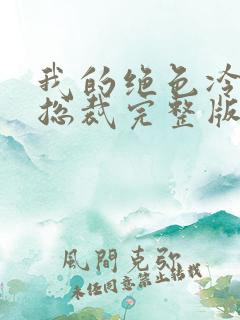 我的绝色冷
总裁完整版
風間克弥
未经同意禁止转载